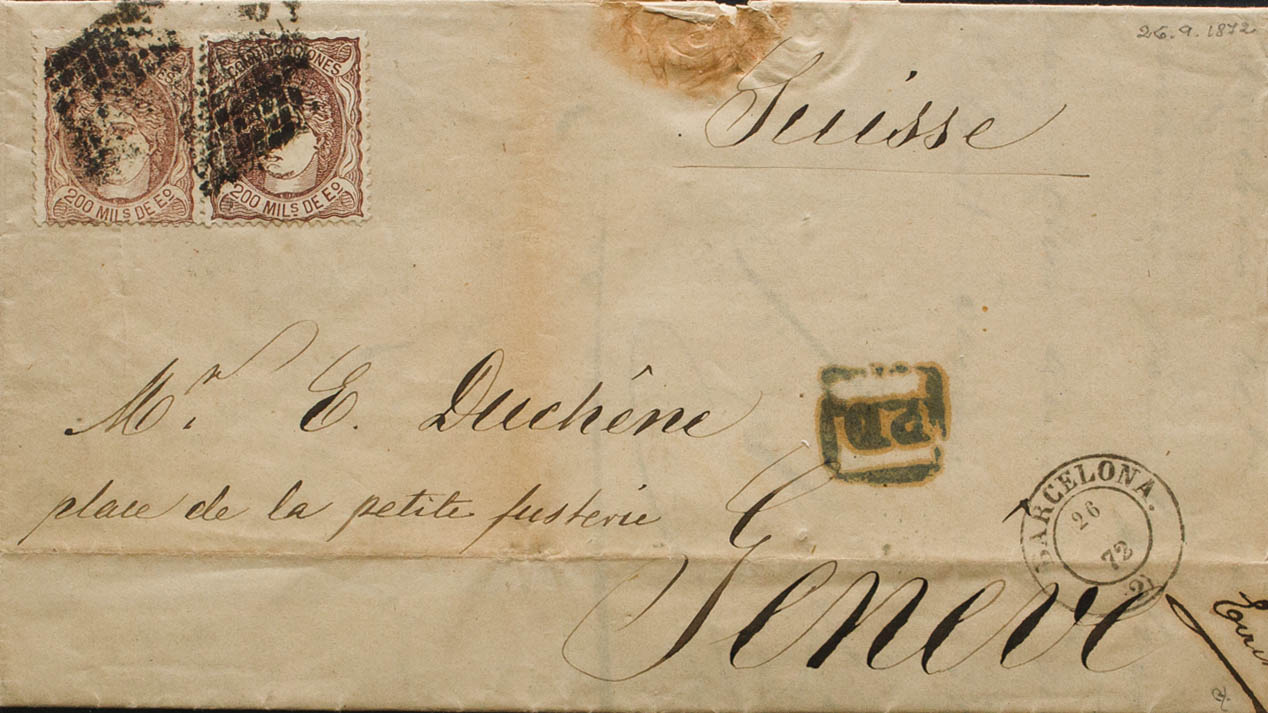 26.9.1872
COMUNICACIONES
200 MILS DE Eo
200 MILS DE Eo
Suisse
Mr. E. Duchêne
PD
place de la petite fusterie
BARCELONA.
26
72
Genève